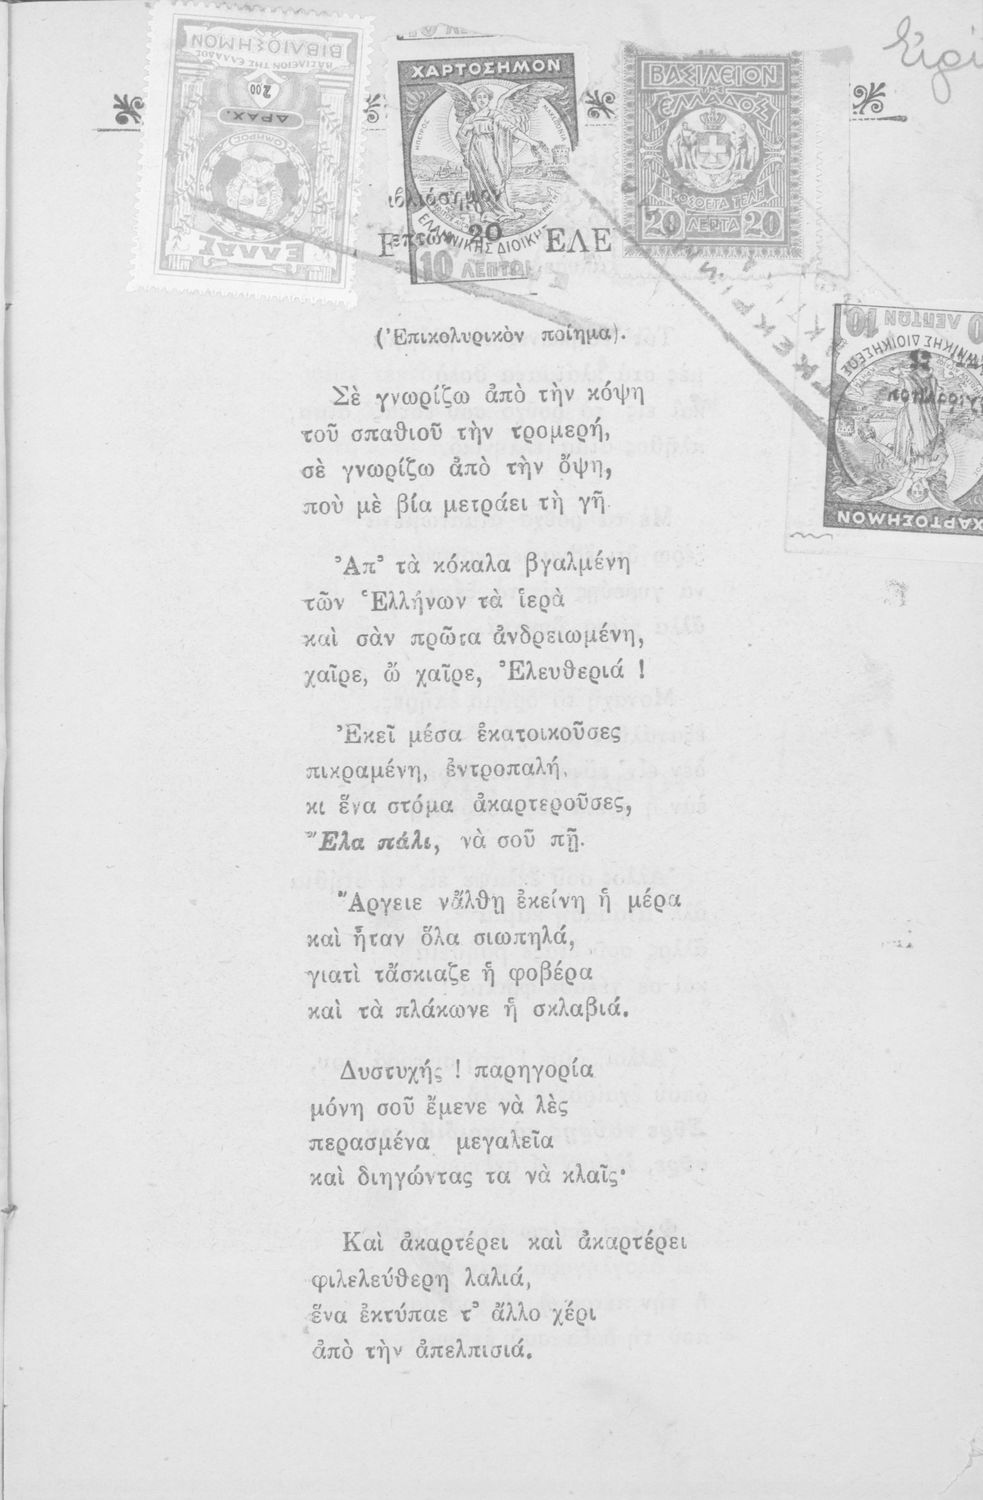 ΒΙΒΛΙΟΣΗΜΟΝ
ΒΑΣΙΛΕΙΟΝ ΤΗΣ ΕΛΛΑΔΟΣ
2.00
ΔΡΑΧ.
ΟΜΗΡΟΣ
ΕΛΛΑΣ
ΧΑΡΤΟΣΗΜΟΝ
ΗΠΕΙΡΟΣ
ΜΑΚΕΔΟΝΙΑ
βιβλιόσημον
20
10 ΛΕΠΤΩΝ
ΒΑΣΙΛΕΙΟΝ
ΤΗΣ
ΕΛΛΑΔΟΣ
ΠΡΟΣΘΕΤΑ ΤΕΛΗ
20 ΛΕΠΤΑ 20
10 ΛΕΠΤΩΝ 10
ΧΑΡΤΟΣΗΜΟΝ
ΕΛΕ
(Ἐπικολυρικὸν ποίημα).
Σὲ γνωρίζω ἀπὸ τὴν κόψη
τοῦ σπαθιοῦ τὴν τρομερή,
σὲ γνωρίζω ἀπὸ τὴν ὄψη,
ποὺ μὲ βία μετράει τὴ γῆ.
Ἀπ᾿ τὰ κόκαλα βγαλμένη
τῶν Ἑλλήνων τὰ ἱερὰ
καὶ σὰν πρῶτα ἀνδρειωμένη,
χαῖρε, ὢ χαῖρε, Ἐλευθεριά !
Ἐκεῖ μέσα ἐκατοικοῦσες
πικραμένη, ἐντροπαλή,
κι ἕνα στόμα ἀκαρτεροῦσες,
Ἔλα πάλι, νὰ σοῦ πῇ.
Ἄργειε νἄλθῃ ἐκείνη ἡ μέρα
καὶ ἦταν ὅλα σιωπηλά,
γιατὶ τἄσκιαζε ἡ φοβέρα
καὶ τὰ πλάκωνε ἡ σκλαβιά.
Δυστυχής ! παρηγορία
μόνη σοῦ ἔμενε νὰ λὲς
περασμένα μεγαλεῖα
καὶ διηγώντας τα νὰ κλαῖς·
Καὶ ἀκαρτέρει καὶ ἀκαρτέρει
φιλελεύθερη λαλιά,
ἕνα ἐκτύπαε τ᾿ ἄλλο χέρι
ἀπὸ τὴν ἀπελπισιά.